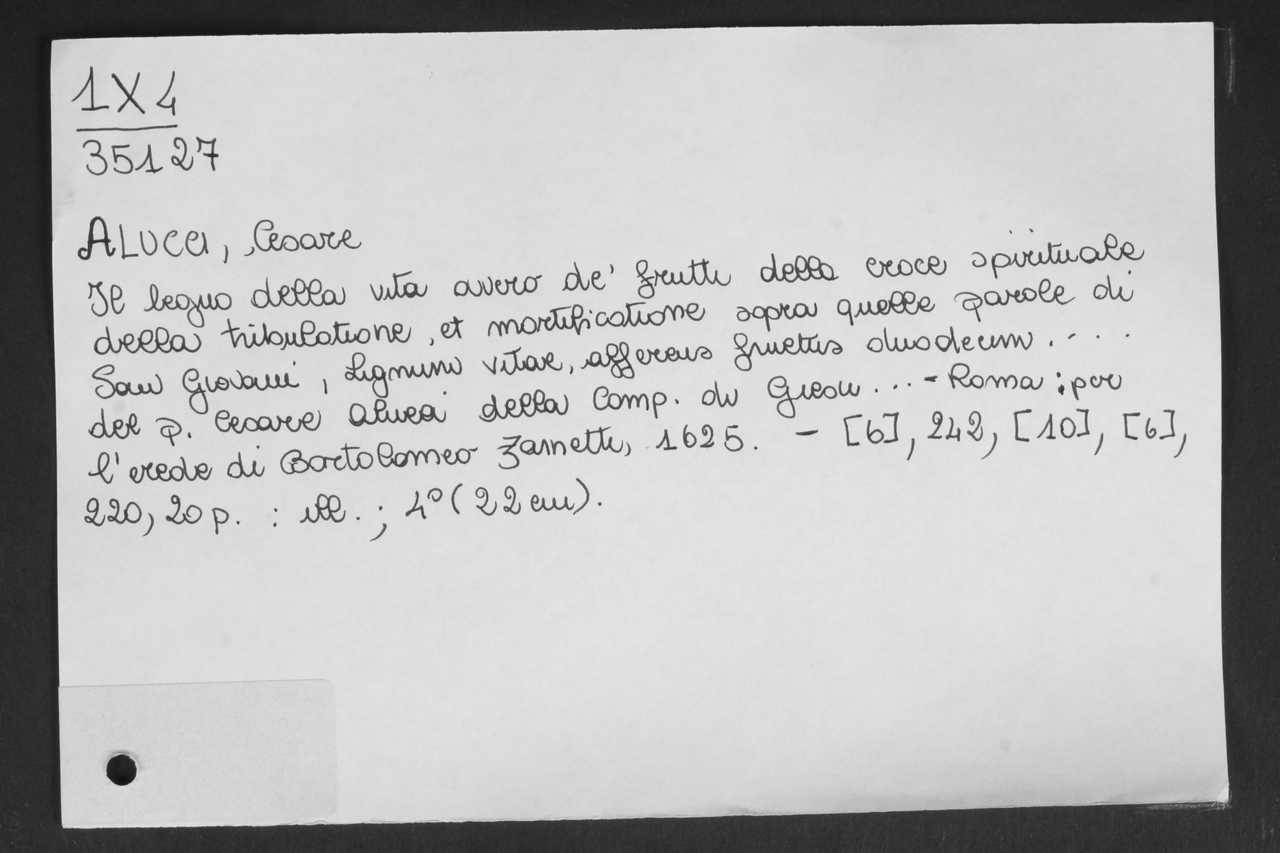 1X4
35127
ALUCCI, Cesare
Il legno della vita overo de' frutti della croce spirituale
della tribulatione, et mortificatione sopra quelle parole di
San Giovanni, Lignum vitae, afferens fructus duodecim....
del p. Cesare Alucci della Comp. di Giesu ... - Roma : per
l'erede di Bartolomeo Zannetti, 1625. - [6], 242, [10], [6],
220, 20 p. : ill. ; 4° (22 cm).